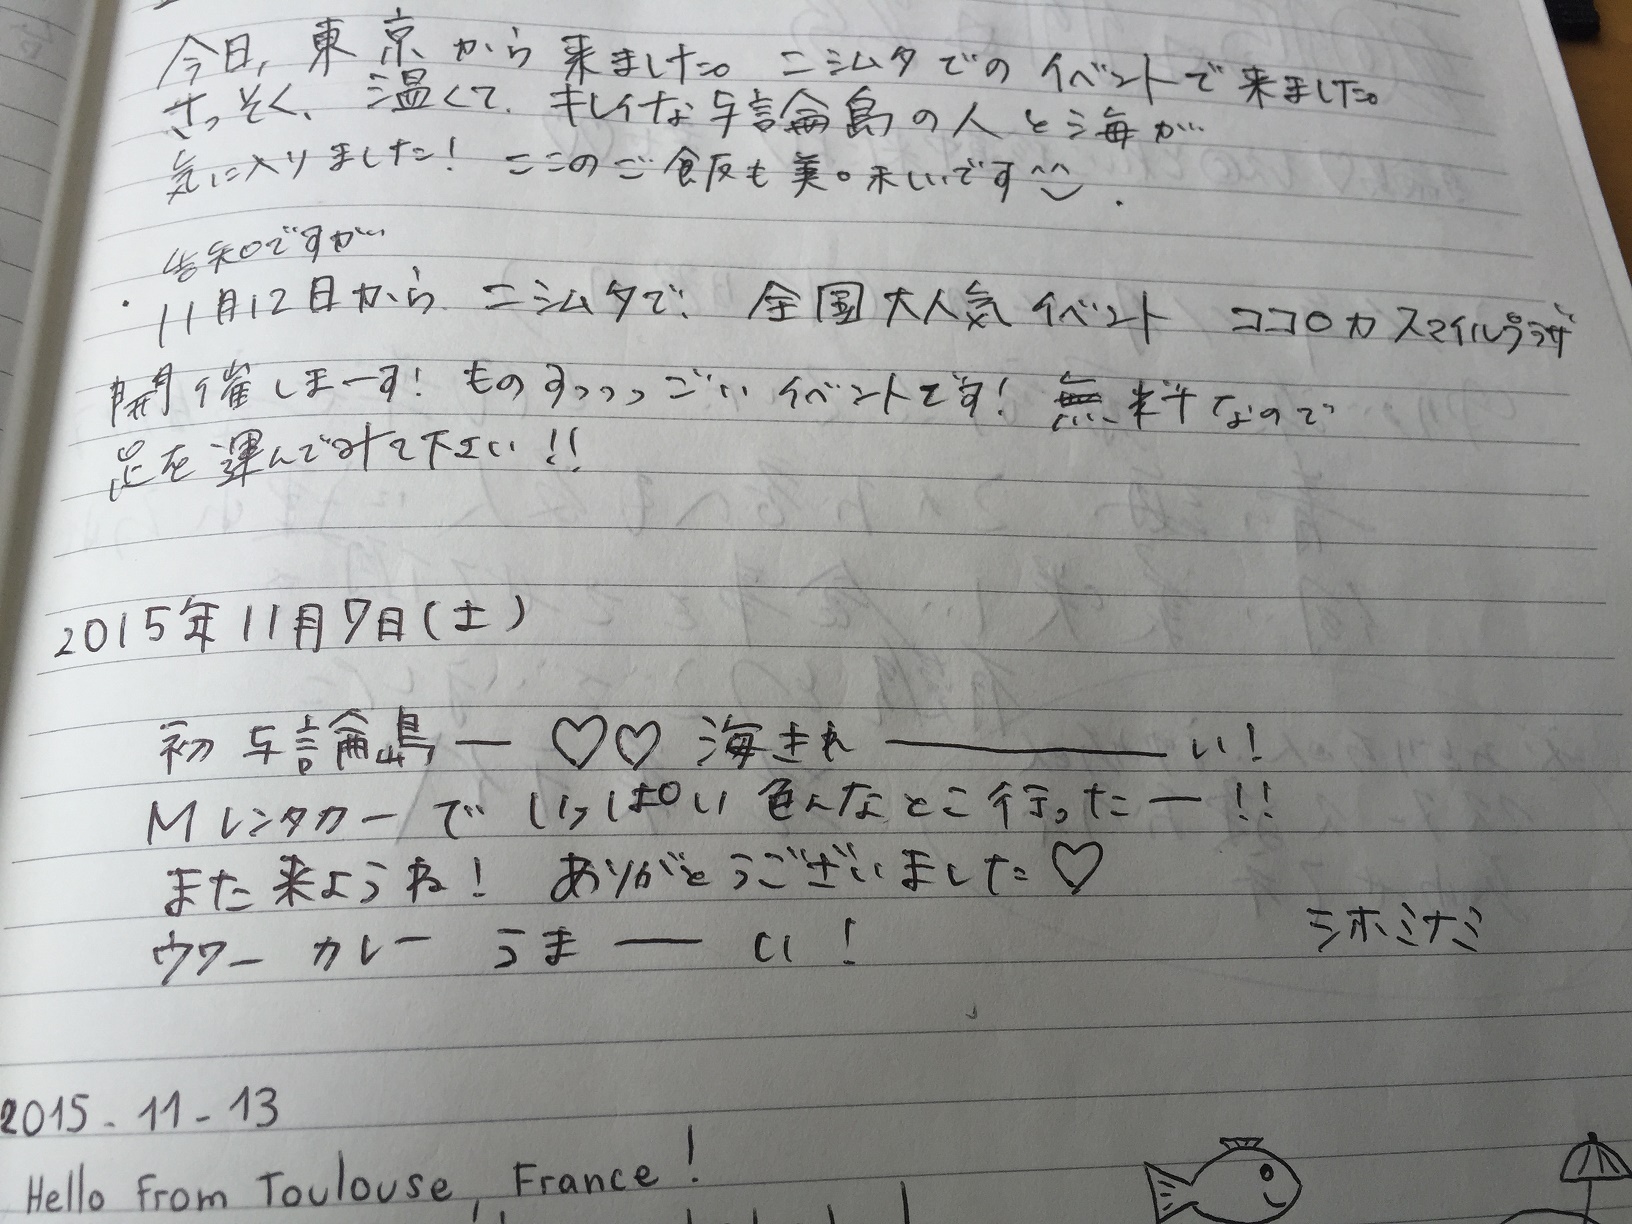 今日, 東京から来ました。ニシムタでのイベントで来ました。
さっそく、温くて、キレイな与論島の人と海が
気に入りました! ここのご飯も美味しいです^^
告知ですが
・11月12日からニシムタで、全国大人気イベント ココロカスマイルプラザ
開催しまーす! ものすっっっごいイベントです! 無料なので
足を運んでみて下さい!!
2015年11月7日(土)
初与論島ー♡♡ 海きれーーーい!
Mレンタカーで いっぱい色んなとこ行ったー!!
また来ようね! ありがとうございました♡
ウワー カレー うまーい!
シホミナミ
2015-11-13
Hello From Toulouse, France!